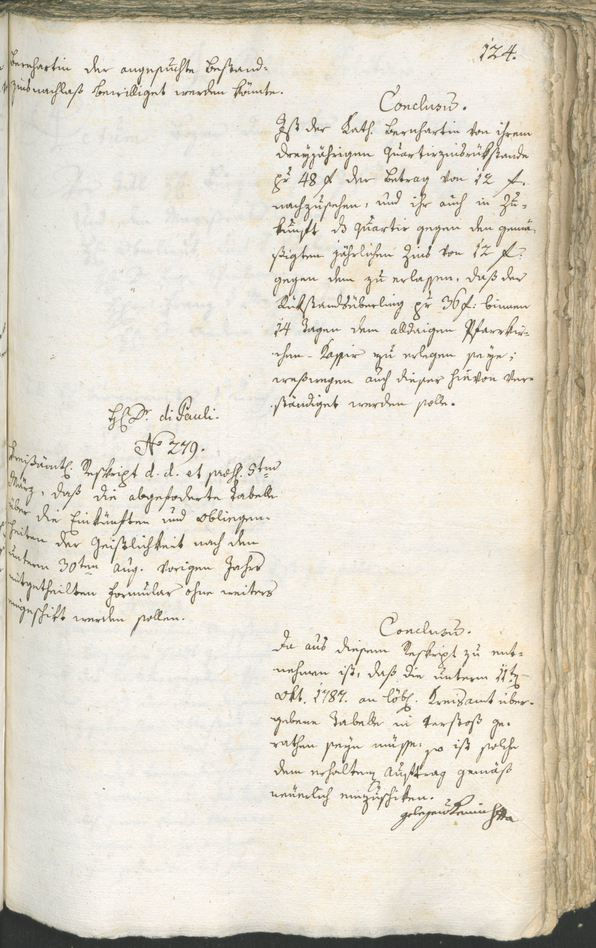 124.
Bernhartin der angesuchte Bestand-
zinsnachlaß bewilliget werden könte.
Conclusum.
Ist der Kath. Bernhartin von ihrem
dreyjährigen Quartierzinsrükstande
pr 48 f der Betrag von 12 f.
nachzusehen, und ihr auch in Zu-
kunft ds Quartir gegen den gemä-
ßigten jährlichen Zins von 12 f.
gegen dem zu erlassen, daß der
Rükstandsüberling pr 36 f: binnen
14 Tagen dem alldaigen Pfarrkir-
chen-Kassir zu erlegen seye;
weßwegen auch dieser hievon ver-
ständiget werden solle.
H. Dr. di Pauli.
No 279.
Kreisämtl. Reskript d. d. et præs. 8tn
März, daß die abgefoderte Tabelle
über die Einkünften und Obliegen-
heiten der Geistlichkeit nach dem
unterm 30ten Aug. vorigen Jahrs
mitgetheilten Formular ohne weiters
eingeschikt werden sollen.
Conclusum.
Da aus diesem Reskript zu ent-
nehmen ist, daß die unterm 11ten
Okt. 1787. an löbl. Kreisamt über-
gebene Tabelle in Verstoß ge-
rathen seyn müsse, so ist solche
dem erhaltenen Auftrag gemäß
neuerlich einzuschiken.